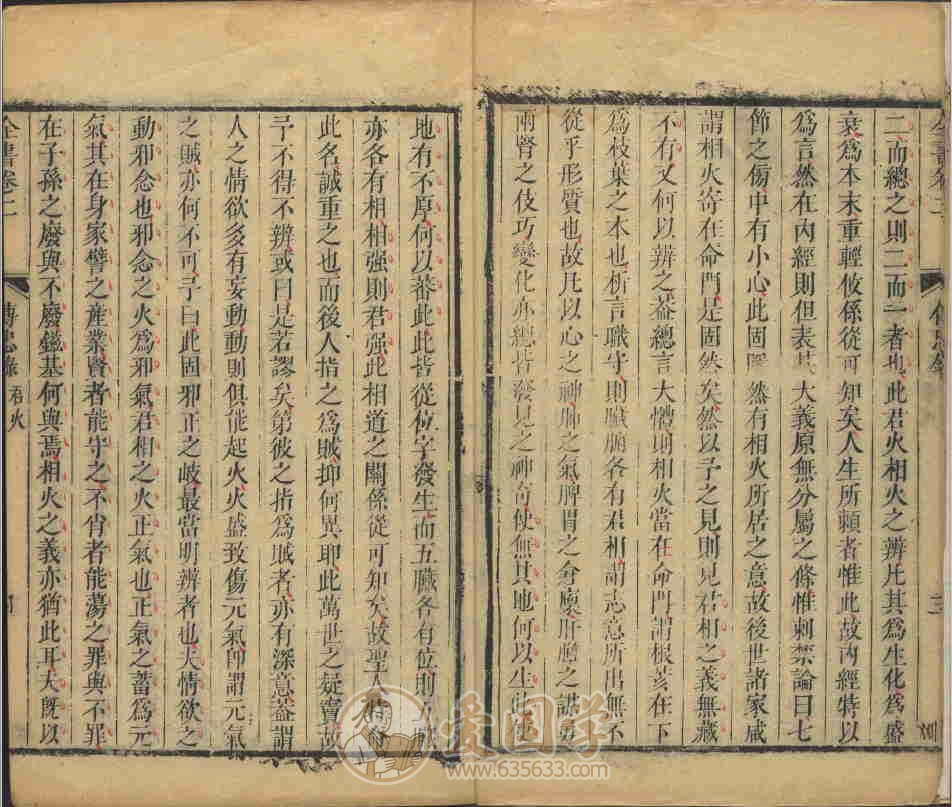 二而總之則二而一者也此君火相火之辨凡其為生化為盛
衰為本末重輕攸係從可知矣人生所賴者惟此故內經特以
為言然在內經則但表其大義原無分屬之條惟刺禁論曰七
節之傍中有小心此固隱然有相火所居之意故後世諸家咸
謂相火寄在命門是固然矣然以予之見則見君相之義無藏
不有又何以辨之蓋總言大體則相火當在命門謂根荄在下
為枝葉之本也析言職守則臟腑各有君相謂志意所出無不
從乎形質也故凡以心之神肺之氣脾胃之倉廩肝膽之謀勇
兩腎之伎巧變化亦總皆發見之神奇使無其地何以生此使
地有不厚何以蕃此此皆從位字發生而五臟各有位則五臟
亦各有相相强則君强此相道之關係從可知矣故聖人特
此名誠重之也而後人指之為賊抑何異耶此萬世之疑竇故
予不得不辨或曰是若謬矣第彼之指為賊者亦有深意蓋謂
人之情欲多有妄動動則俱能起火火盛致傷元氣卽謂元氣
之賊亦何不可予曰此固邪正之歧最當明辨者也夫情欲之
動邪念也邪念之火為邪氣君相之火正氣也正氣之蓄為元
氣其在身家譬之產業賢者能守之不肖者能蕩之罪與不罪
在子孫之廢與不廢鎡基何與焉相火之義亦猶此耳夫旣以
全書卷二
傳忠錄
君火
爱国学
www.635633.com